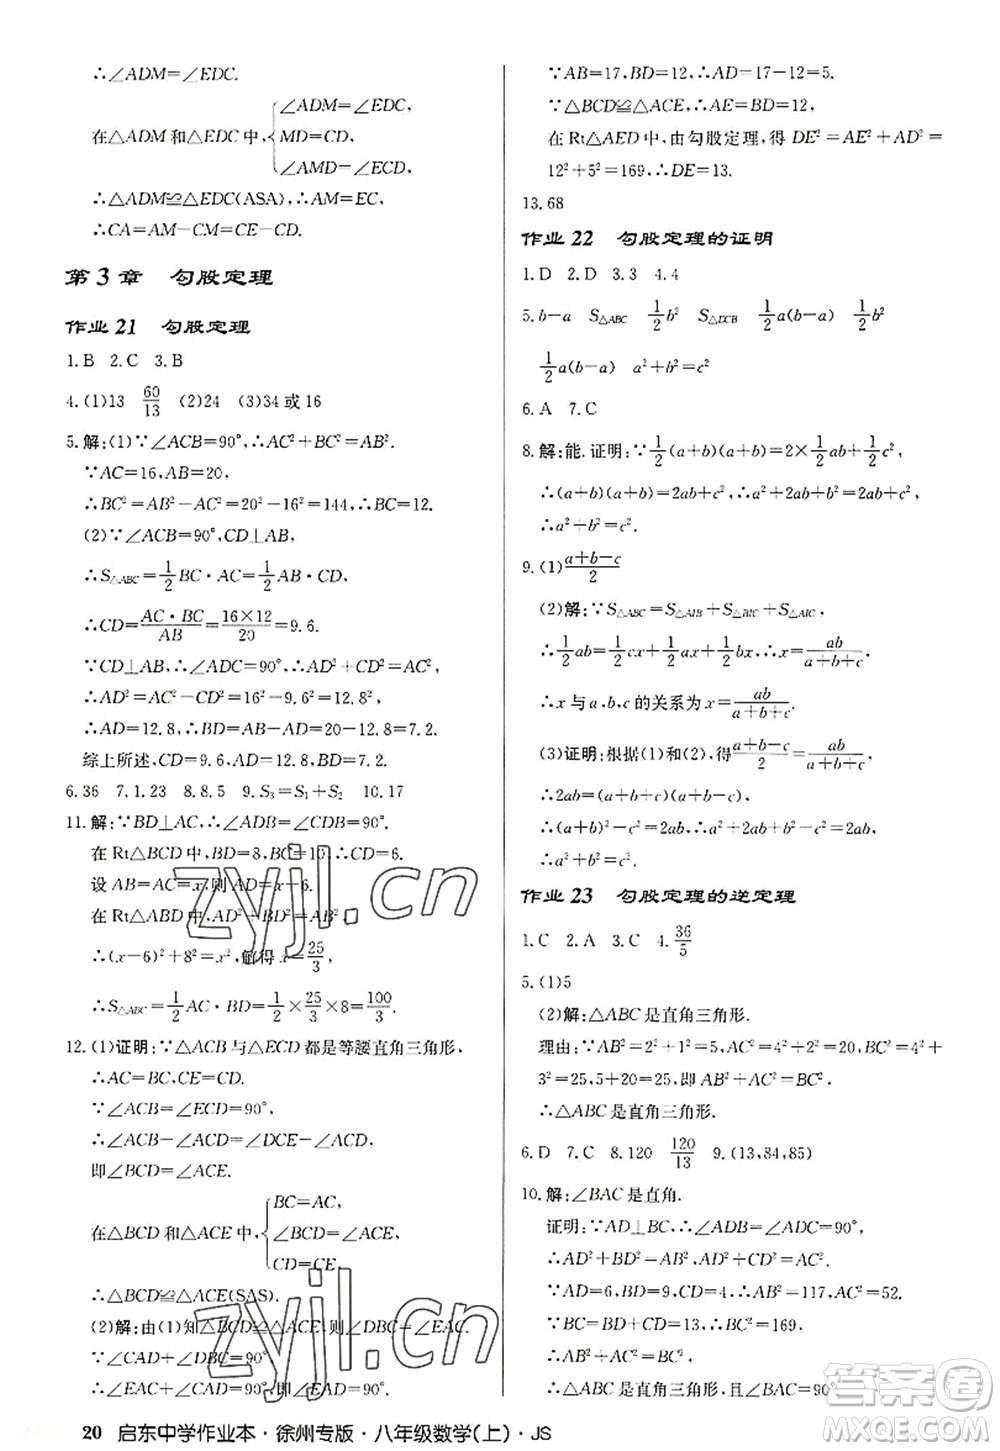 ∴∠ADM=∠EDC.
在△ADM和△EDC中,{∠ADM=∠EDC,
MD=CD,
∠AMD=∠ECD,
∴△ADM≌△EDC(ASA),∴AM=EC,
∴CA=AM-CM=CE-CM=EM.
第3章 勾股定理
作业21 勾股定理
1.B 2.C 3.B
4.(1)13 60/13 (2)24 (3)34或16
5.解:(1)∵∠ACB=90°,∴AC²+BC²=AB².
∵AC=16,AB=20,
∴BC²=AB²-AC²=20²-16²=144,∴BC=12.
(2)∵∠ACB=90°,CD⊥AB,
∴S△ABC=1/2BC·AC=1/2AB·CD,
∴CD=AC·BC/AB=16×12/20=9.6.
∵CD⊥AB,∴∠ADC=90°,∴AD²+CD²=AC²,
∴AD²=AC²-CD²=16²-9.6²=12.8²,
∴AD=12.8,∴BD=AB-AD=20-12.8=7.2.
综上所述,CD=9.6,AD=12.8,BD=7.2.
6.36 7.1.23 8.8.5 9.S₃=S₁+S₂ 10.17
11.解:∵BD⊥AC,∴∠ADB=∠CDB=90°.
在Rt△BCD中,BD=8,BC=10,∴CD=6.
设AB=AC=x,则AD=x-6.
在Rt△ABD中,AD²+BD²=AB²,
∴(x-6)²+8²=x²,解得x=25/3,
∴S△ABC=1/2AC·BD=1/2×25/3×8=100/3.
12.(1)证明:∵△ACB与△ECD都是等腰直角三角形,
∴AC=BC,CE=CD.
∵∠ACB=∠ECD=90°,
∴∠ACB-∠ACD=∠DCE-∠ACD,
即∠BCD=∠ACE.
在△BCD和△ACE中,{BC=AC,
∠BCD=∠ACE,
CD=CE,
∴△BCD≌△ACE(SAS).
(2)解:由(1)知△BCD≌△ACE,则∠DBC=∠EAC.
∵∠CAD+∠DBC=90°,
∴∠EAC+∠CAD=90°,即∠EAD=90°.
∵AB=17,BD=12,∴AD=17-12=5.
∵△BCD≌△ACE,∴AE=BD=12,
在Rt△AED中,由勾股定理,得DE²=AE²+AD²=
12²+5²=169,∴DE=13.
13.68
作业22 勾股定理的证明
1.D 2.D 3.3 4.4
5.b-a S△ABC 1/2b² S△DCB 1/2a(b-a) 1/2b²
1/2a(b-a) a²+b²=c²
6.A 7.C
8.解:能.证明:∵1/2(a+b)(a+b)=2×1/2ab+1/2c²,
∴(a+b)(a+b)=2ab+c²,∴a²+2ab+b²=2ab+c²,
∴a²+b²=c².
9.(1)(a+b-c)/2
(2)解:∵S△ABC=S△AIB+S△BIC+S△AIC,
∴1/2ab=1/2cx+1/2ax+1/2bx,∴x=ab/(a+b+c),
∴x与a,b,c的关系为x=ab/(a+b+c).
(3)证明:根据(1)和(2),得(a+b-c)/2=ab/(a+b+c),
∴2ab=(a+b+c)(a+b-c),
∴2ab=a²+2ab+b²-c²=2ab,
∴a²+b²=c².
作业23 勾股定理的逆定理
1.C 2.A 3.C 4.36/5
5.(1)5
(2)解:△ABC是直角三角形.
理由:∵AB²=2²+1²=5,AC²=4²+2²=20,BC²=4²+
3²=25,5+20=25,即AB²+AC²=BC²,
∴△ABC是直角三角形.
6.D 7.C 8.120 120/13 9.(13,84,85)
10.解:∠BAC是直角.
证明:∵AD⊥BC,∴∠ADB=∠ADC=90°,
∴AD²+BD²=AB²,AD²+CD²=AC².
∵AD=6,BD=9,CD=4,∴AB²=117,AC²=52.
∵BC=BD+CD=13,∴BC²=169,
∴AB²+AC²=BC²,
∴△ABC是直角三角形,且∠BAC=90°.
20 启东中学作业本·徐州专版·八年级数学(上)·JS
zyjl.cn
zyjl.cn
答案圈
MXQE.COM